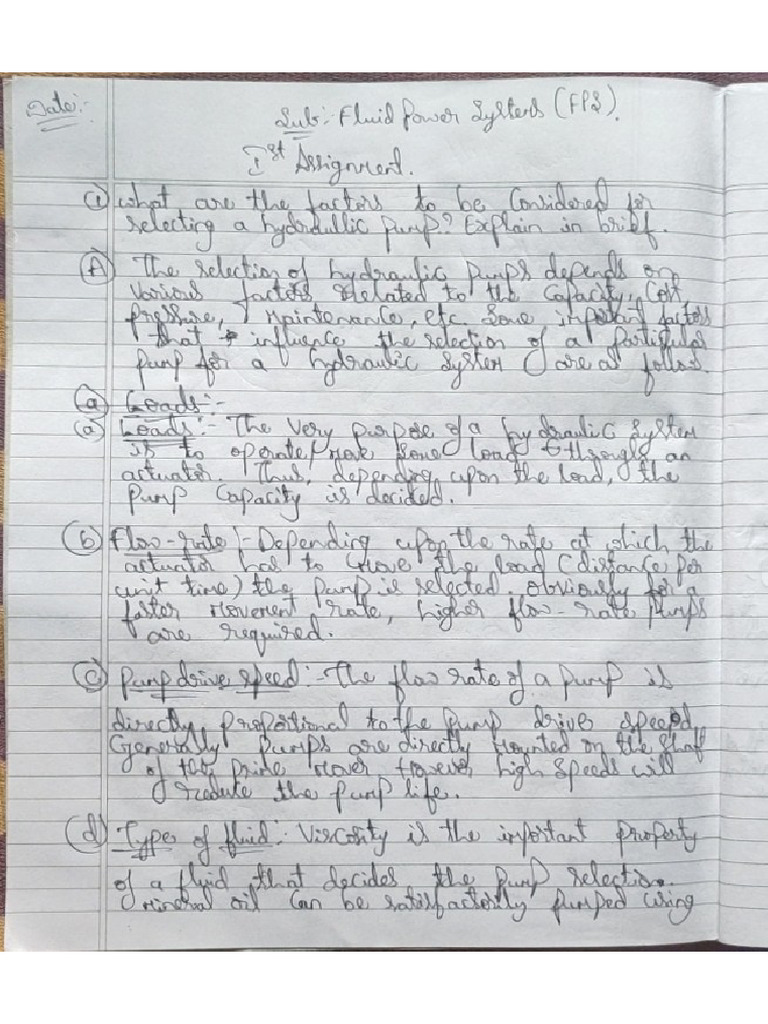 Date:-
Sub:- Fluid Power Systems (FPS).
Ist Assignment.
Q what are the factors to be Considered for
selecting a hydraullic pump? Explain in brief.
A The selection of hydraulic pumps depends on
various factors related to the Capacity, Cost
pressure, Maintenance, etc. Some important factors
that influence the selection of a particular
pump for a hydraulic system are as follows.
a Loads:-
a Loads:- The very purpose of a hydraulic system
is to operate/move some load through an
actuator. Thus, depending upon the load, the
pump Capacity is decided.
b Flow-rate:- Depending upon the rate at which the
actuator has to move the load (distance per
unit time) the pump is selected. Obviously for a
faster movement rate, higher flow-rate pumps
are required.
c Pump drive speed:- The flow rate of a pump is
directly proportional to the pump drive speed.
Generally pumps are directly mounted on the shaft
of the prime mover However high speeds will
reduce the pump life.
d Type of fluid:- Viscosity is the important property
of a fluid that decides the pump selection.
mineral oil can be satisfactorily pumped using